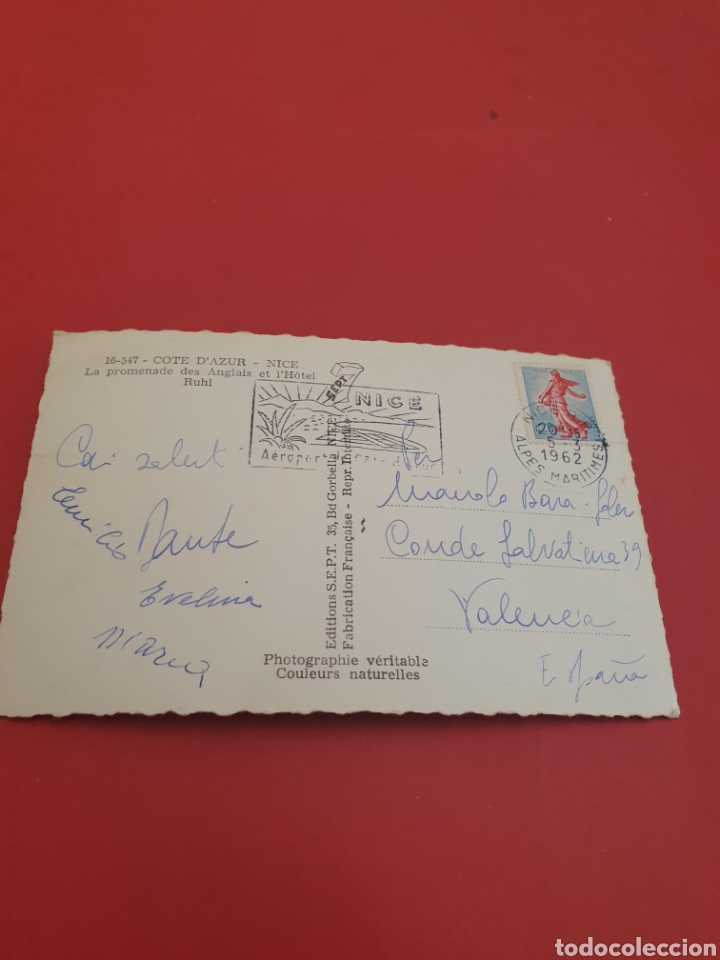 16-547 - COTE D'AZUR - NICE
La promenade des Anglais et l'Hôtel
Ruhl
SEPT
NICE
Aéroport
NICE
20
5-3
1962
ALPES MARITIMES
Cari saluti
Dante
Evelina
Maria
Editions S.E.P.T. 35, Bd Gorbella, NICE
Fabrication Française - Repr. Interdite
Sen
Manolo
Conde Salvatierra 39
Valencia
España
Photographie véritable
Couleurs naturelles
todocoleccion